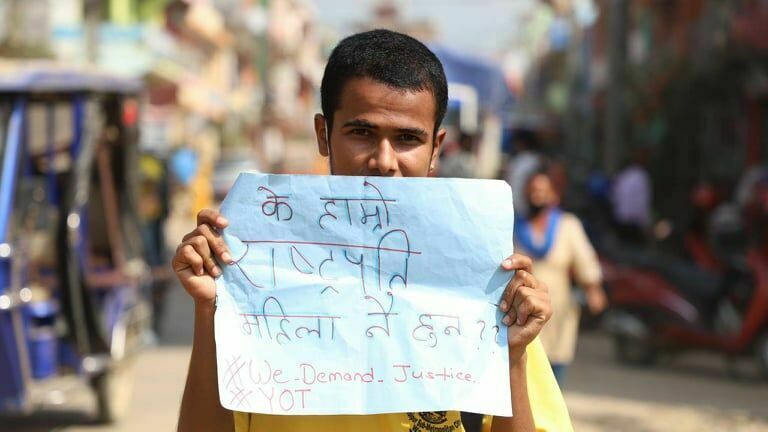 के हाम्रो
राष्ट्रपति
महिला नै हुन ??
#We-Demand-Justice.
#YOT